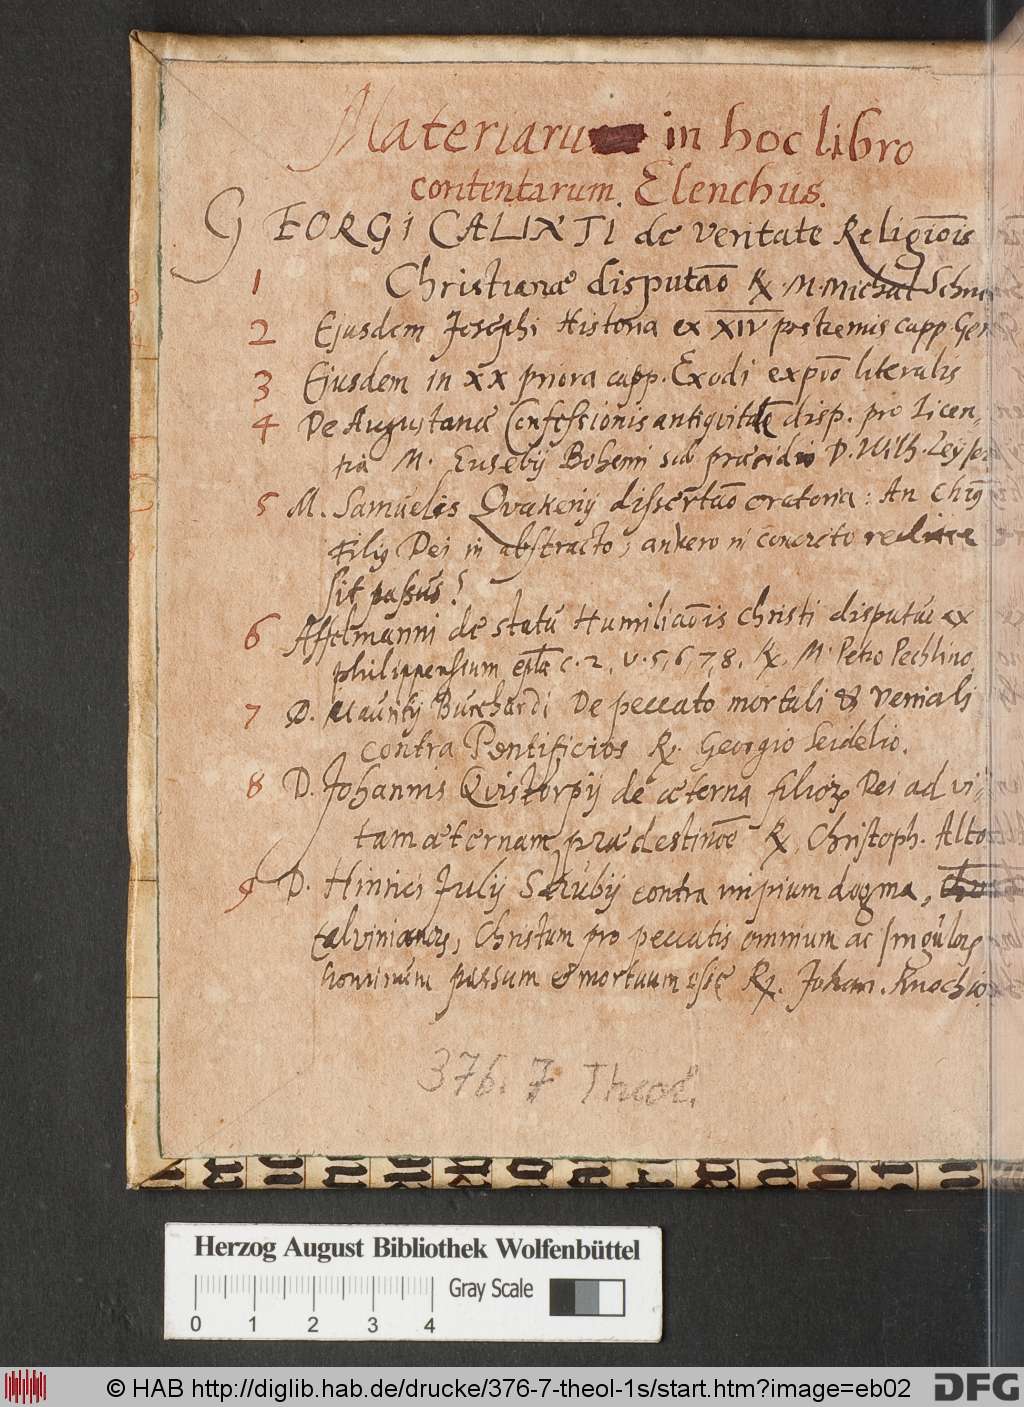 Materiaru in hoc libro
contentarum. Elenchus.
GEORGI CALIXTI de veritate Religiōis
1 Christianæ disputaō ℞. M. Michael Schne
2 Ejusdem Josephi Historia ex XIV postremis capp. Gen
3 Ejusdem in XX priora capp. Exodi expōo literalis
4 De Augustanæ Confessionis antiquitate disp. pro Licen-
tia M. Eusebij Bohemi sub præsidio D. Wilh. Leyser
5 M. Samuelis disserta͞o oratoria: An
Dei in abstracto, an vero in concreto
sit passus?
6 Affelmanni de statu Humiliaōis Christi ex
philippensium c. 2, v. 5, 6, 7, 8. ℞. M. Petro Pechlino
7 D. Mauritij Burchardi De peccato mortali & veniali
contra Pontificios ℞. Georgio Seidelio.
8 D. Johannis Qvistorpij de æterna filiorꝝ Dei ad vi-
tam æternam prædestinōe ℞. Christoph.
9 D. Hinrici Julij contra impium dogma,
Calvinianorꝝ, Christum pro peccatis omnium ac singulorꝝ
hominum passum & mortuum esse ℞. Johan. Knochio.
376. 7 Theol.
Herzog August Bibliothek Wolfenbüttel
Gray Scale
0 1 2 3 4
© HAB http://diglib.hab.de/drucke/376-7-theol-1s/start.htm?image=eb02
DFG